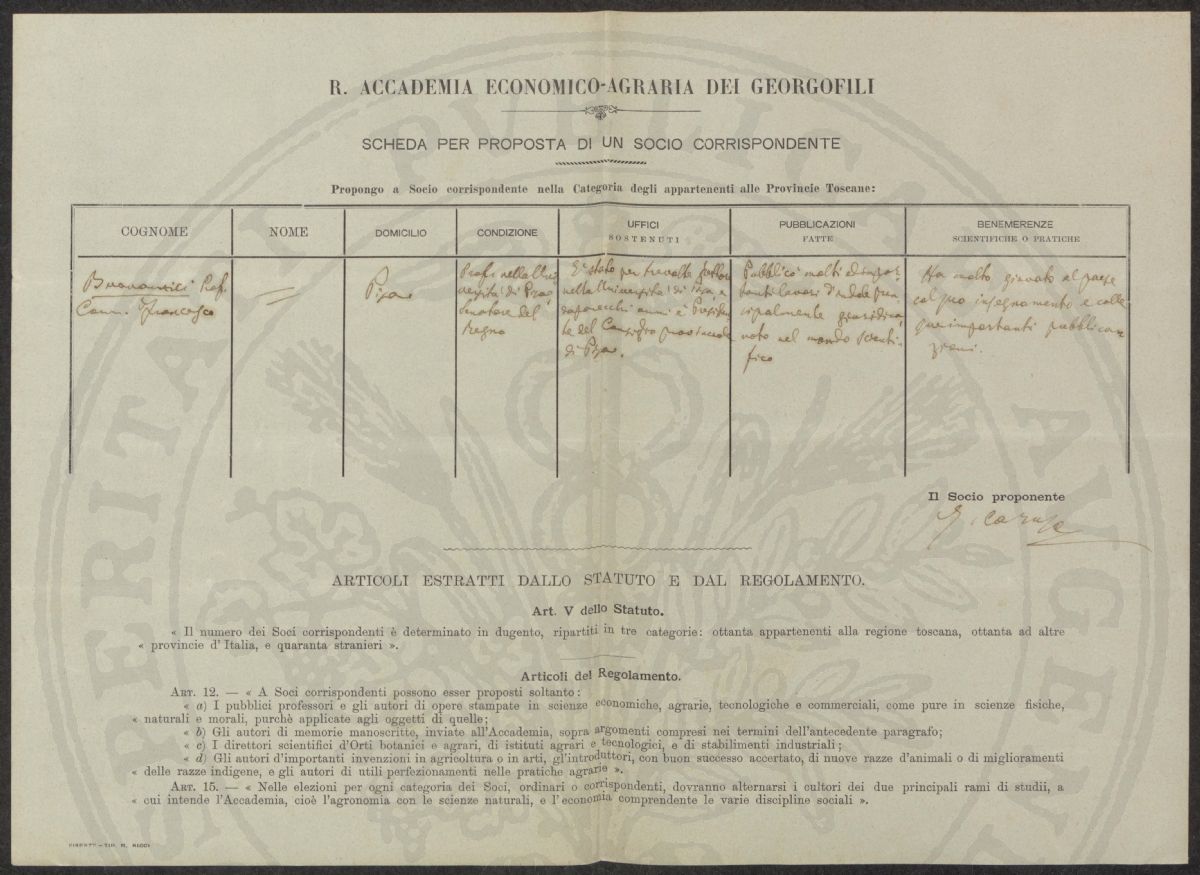 R. ACCADEMIA ECONOMICO-AGRARIA DEI GEORGOFILI
SCHEDA PER PROPOSTA DI UN SOCIO CORRISPONDENTE
Propongo a Socio corrispondente nella Categoria degli appartenenti alle Provincie Toscane:
COGNOME
NOME
DOMICILIO
CONDIZIONE
UFFICI
SOSTENUTI
PUBBLICAZIONI
FATTE
BENEMERENZE
SCIENTIFICHE O PRATICHE
Buonamici Prof.
Comm. Francesco
Pisa
Prof. nella Uni
versità di Pisa
Senatore del
Regno
È stato per tre volte Rettore
nella Università di Pisa, e
da parecchi anni è Presiden
te del Consiglio provinciale
di Pisa.
Pubblicò molti ed impor
tanti lavori d'indole prin
cipalmente giuridica,
noto nel mondo scienti-
fico
Ha molto giovato al paese
col suo insegnamento e colle
sue importanti pubblica
zioni.
Il Socio proponente
G. Caruso
ARTICOLI ESTRATTI DALLO STATUTO E DAL REGOLAMENTO.
Art. V dello Statuto.
« Il numero dei Soci corrispondenti è determinato in dugento, ripartiti in tre categorie: ottanta appartenenti alla regione toscana, ottanta ad altre
« provincie d'Italia, e quaranta stranieri ».
Articoli del Regolamento.
ART. 12. — « A Soci corrispondenti possono esser proposti soltanto:
« a) I pubblici professori e gli autori di opere stampate in scienze economiche, agrarie, tecnologiche e commerciali, come pure in scienze fisiche,
« naturali e morali, purchè applicate agli oggetti di quelle;
« b) Gli autori di memorie manoscritte, inviate all'Accademia, sopra argomenti compresi nei termini dell'antecedente paragrafo;
« c) I direttori scientifici d'Orti botanici e agrari, di istituti agrari e tecnologici, e di stabilimenti industriali;
« d) Gli autori d'importanti invenzioni in agricoltura o in arti, gl'introduttori, con buon successo accertato, di nuove razze d'animali o di miglioramenti
« delle razze indigene, e gli autori di utili perfezionamenti nelle pratiche agrarie ».
ART. 15. — « Nelle elezioni per ogni categoria dei Soci, ordinari o corrispondenti, dovranno alternarsi i cultori dei due principali rami di studii, a
« cui intende l'Accademia, cioè l'agronomia con le scienze naturali, e l'economia comprendente le varie discipline sociali ».
FIRENZE - TIP. M. RICCI